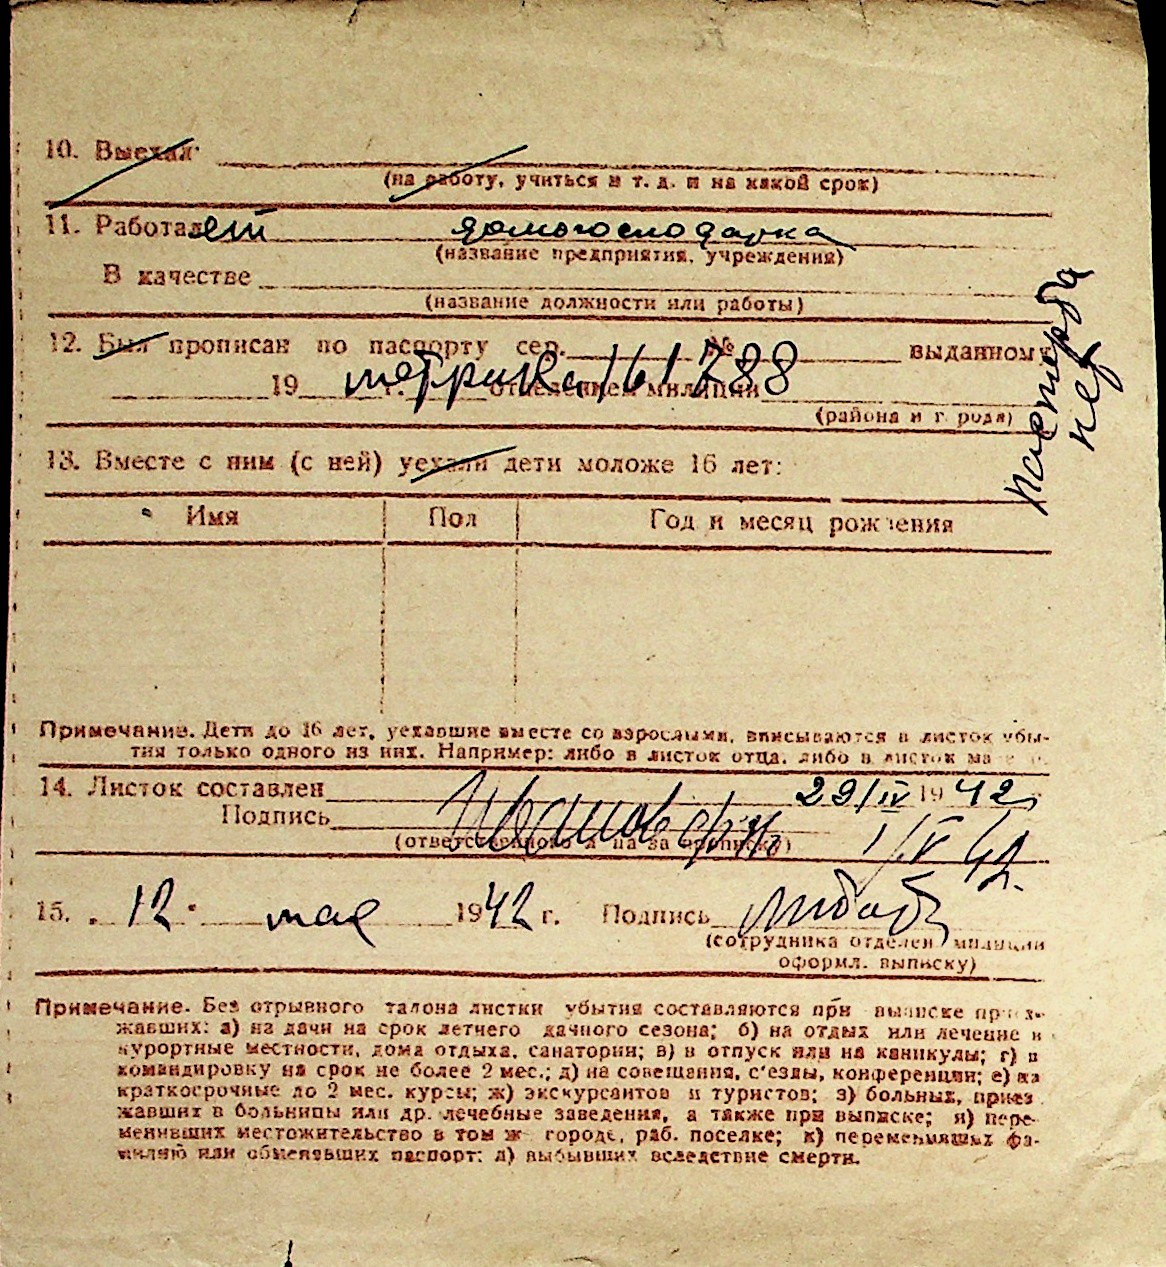 10. Выехал
(на работу, учиться и т. д. и на какой срок)
11. Работает домогосподарка
(название предприятия, учреждения)
В качестве
(название должности или работы)
12. Был прописан по паспорту сер. № выданному
19 г. отделением милиции
метрика 161788
(района и города)
паспорта
нет
13. Вместе с ним (с ней) уехали дети моложе 16 лет:
Имя Пол Год и месяц рождения
Примечание. Дети до 16 лет, уехавшие вместе со взрослыми, вписываются в листок убы-
тия только одного из них. Например: либо в листок отца, либо в листок матери.
14. Листок составлен 29/IV 1942
Подпись
(ответственного лица за прописку)
1/V 42.
15. „12" мая 1942 г. Подпись
(сотрудника отделен. милиции
оформл. выписку)
Примечание. Без отрывного талона листки убытия составляются при выписке приез-
жавших: а) на дачи на срок летнего дачного сезона; б) на отдых или лечение в
курортные местности, дома отдыха, санатории; в) в отпуск или на каникулы; г) в
командировку на срок не более 2 мес.; д) на совещания, с'езды, конференции; е) на
краткосрочные до 2 мес. курсы; ж) экскурсантов и туристов; з) больных, приез-
жавших в больницы или др. лечебные заведения, а также при выписке; и) пере-
менивших местожительство в том ж городе, раб. поселке; к) переменивших фа-
милию или обменявших паспорт; л) выбывших вследствие смерти.